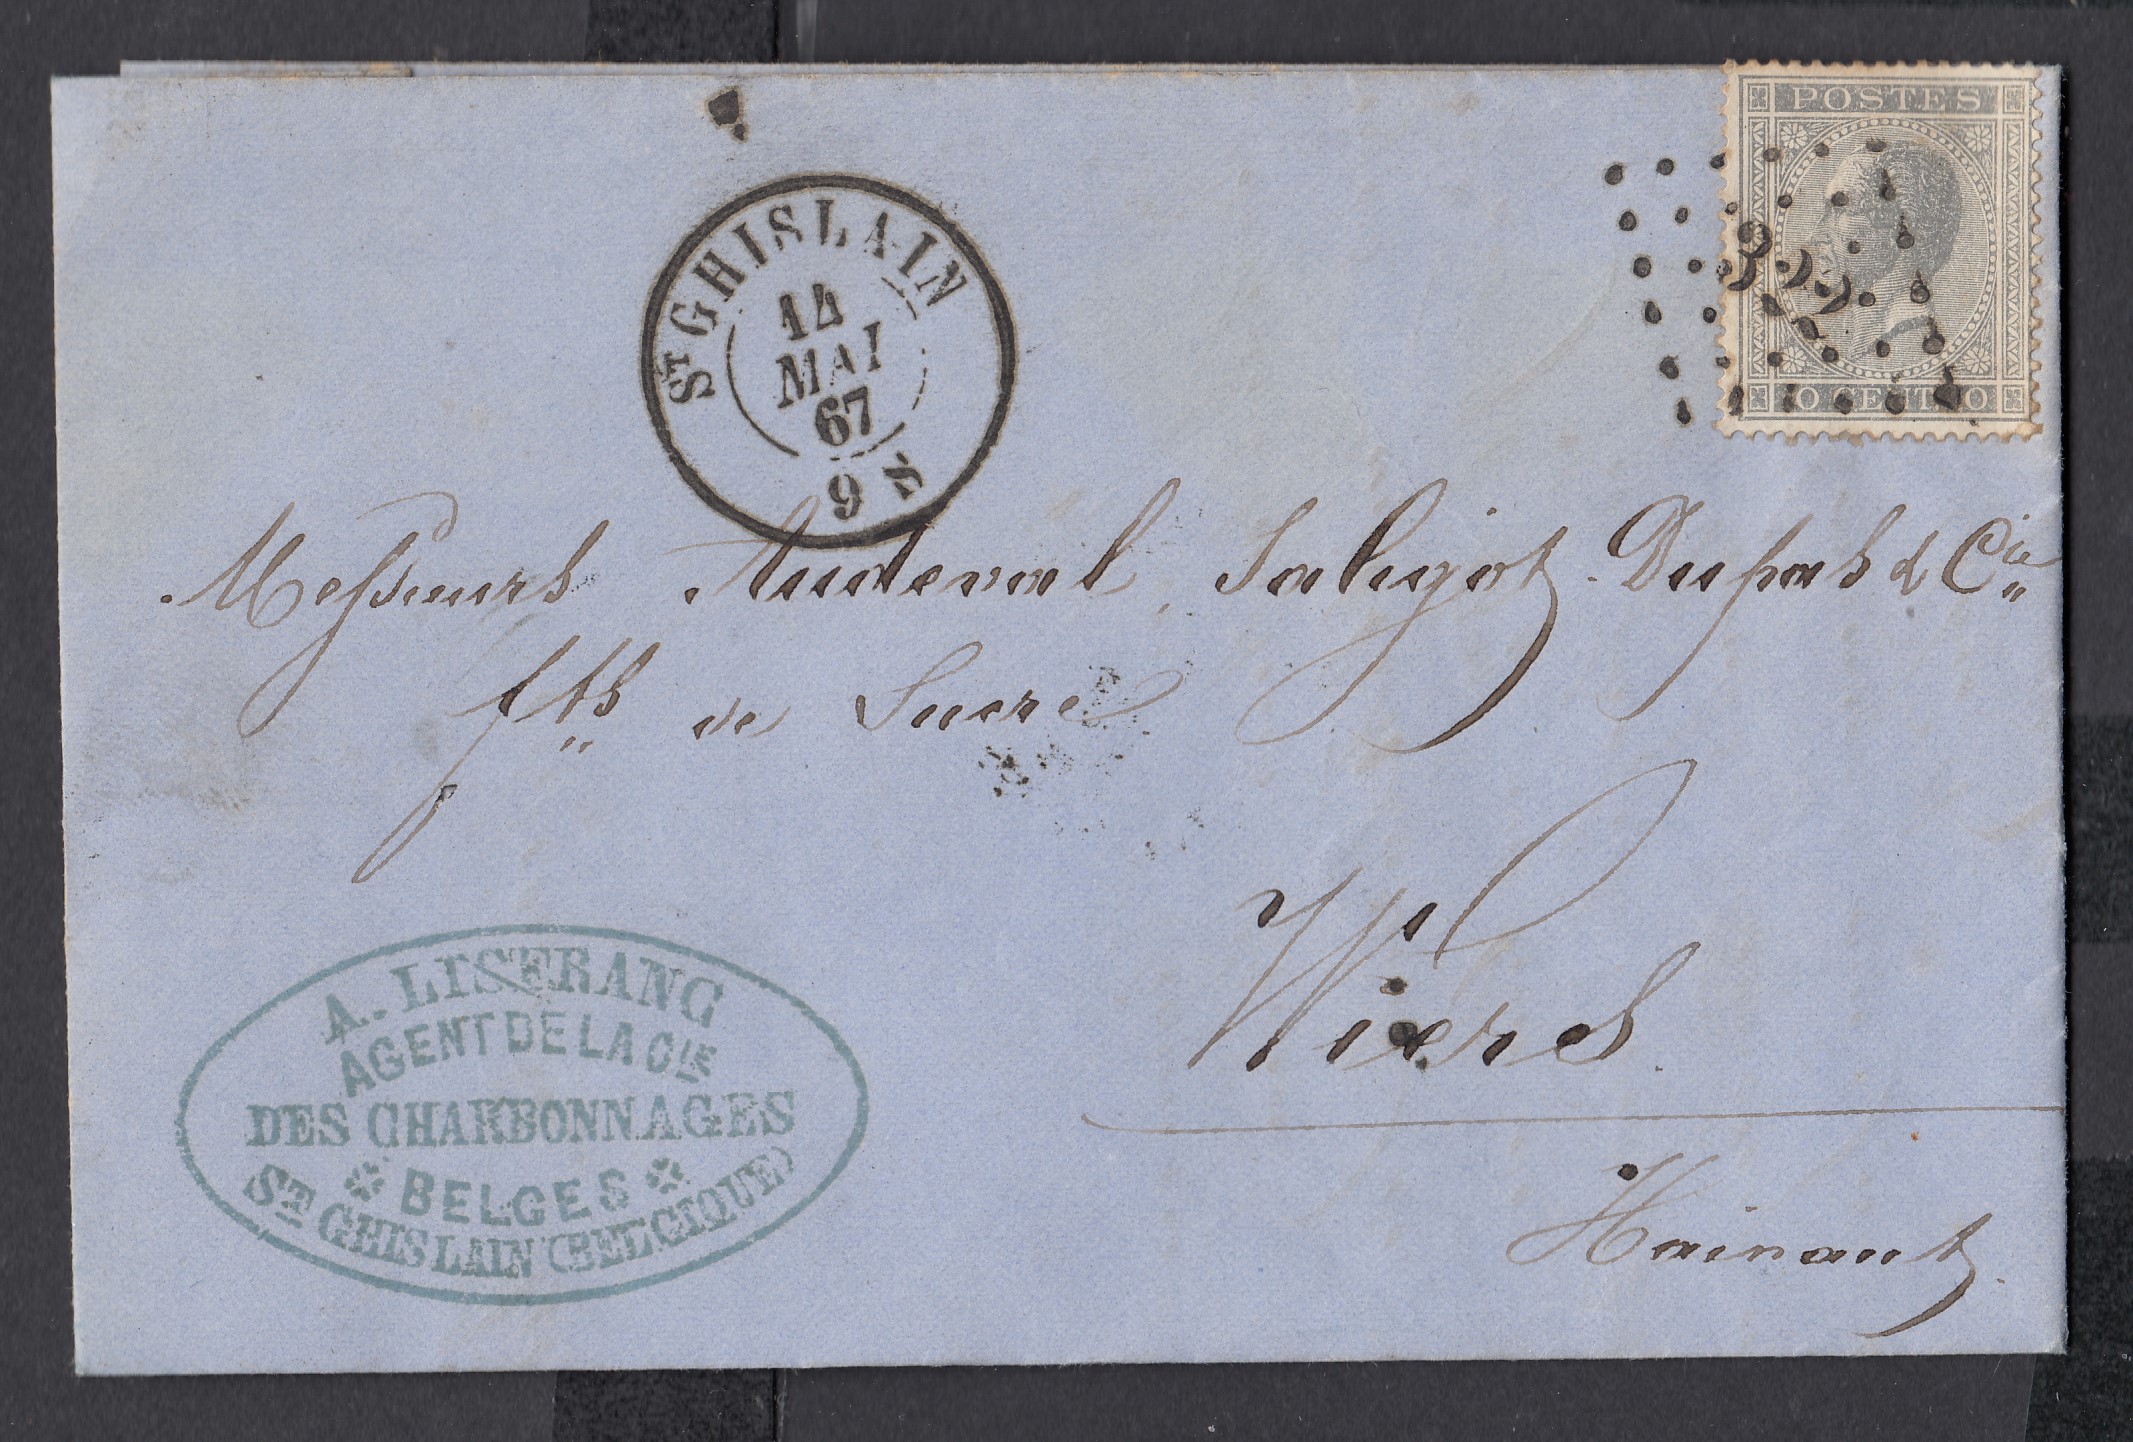 POSTES
10 CENT. 10
ST GHISLAIN
14
MAI
67
9 S
Messieurs Audeval, Saligot Dupas & Cie
fts de Sucre
Wiers
Hainaut
A. LISFRANC
AGENT DE LA CIE
DES CHARBONNAGES
BELGES
ST GHISLAIN (BELGIQUE)